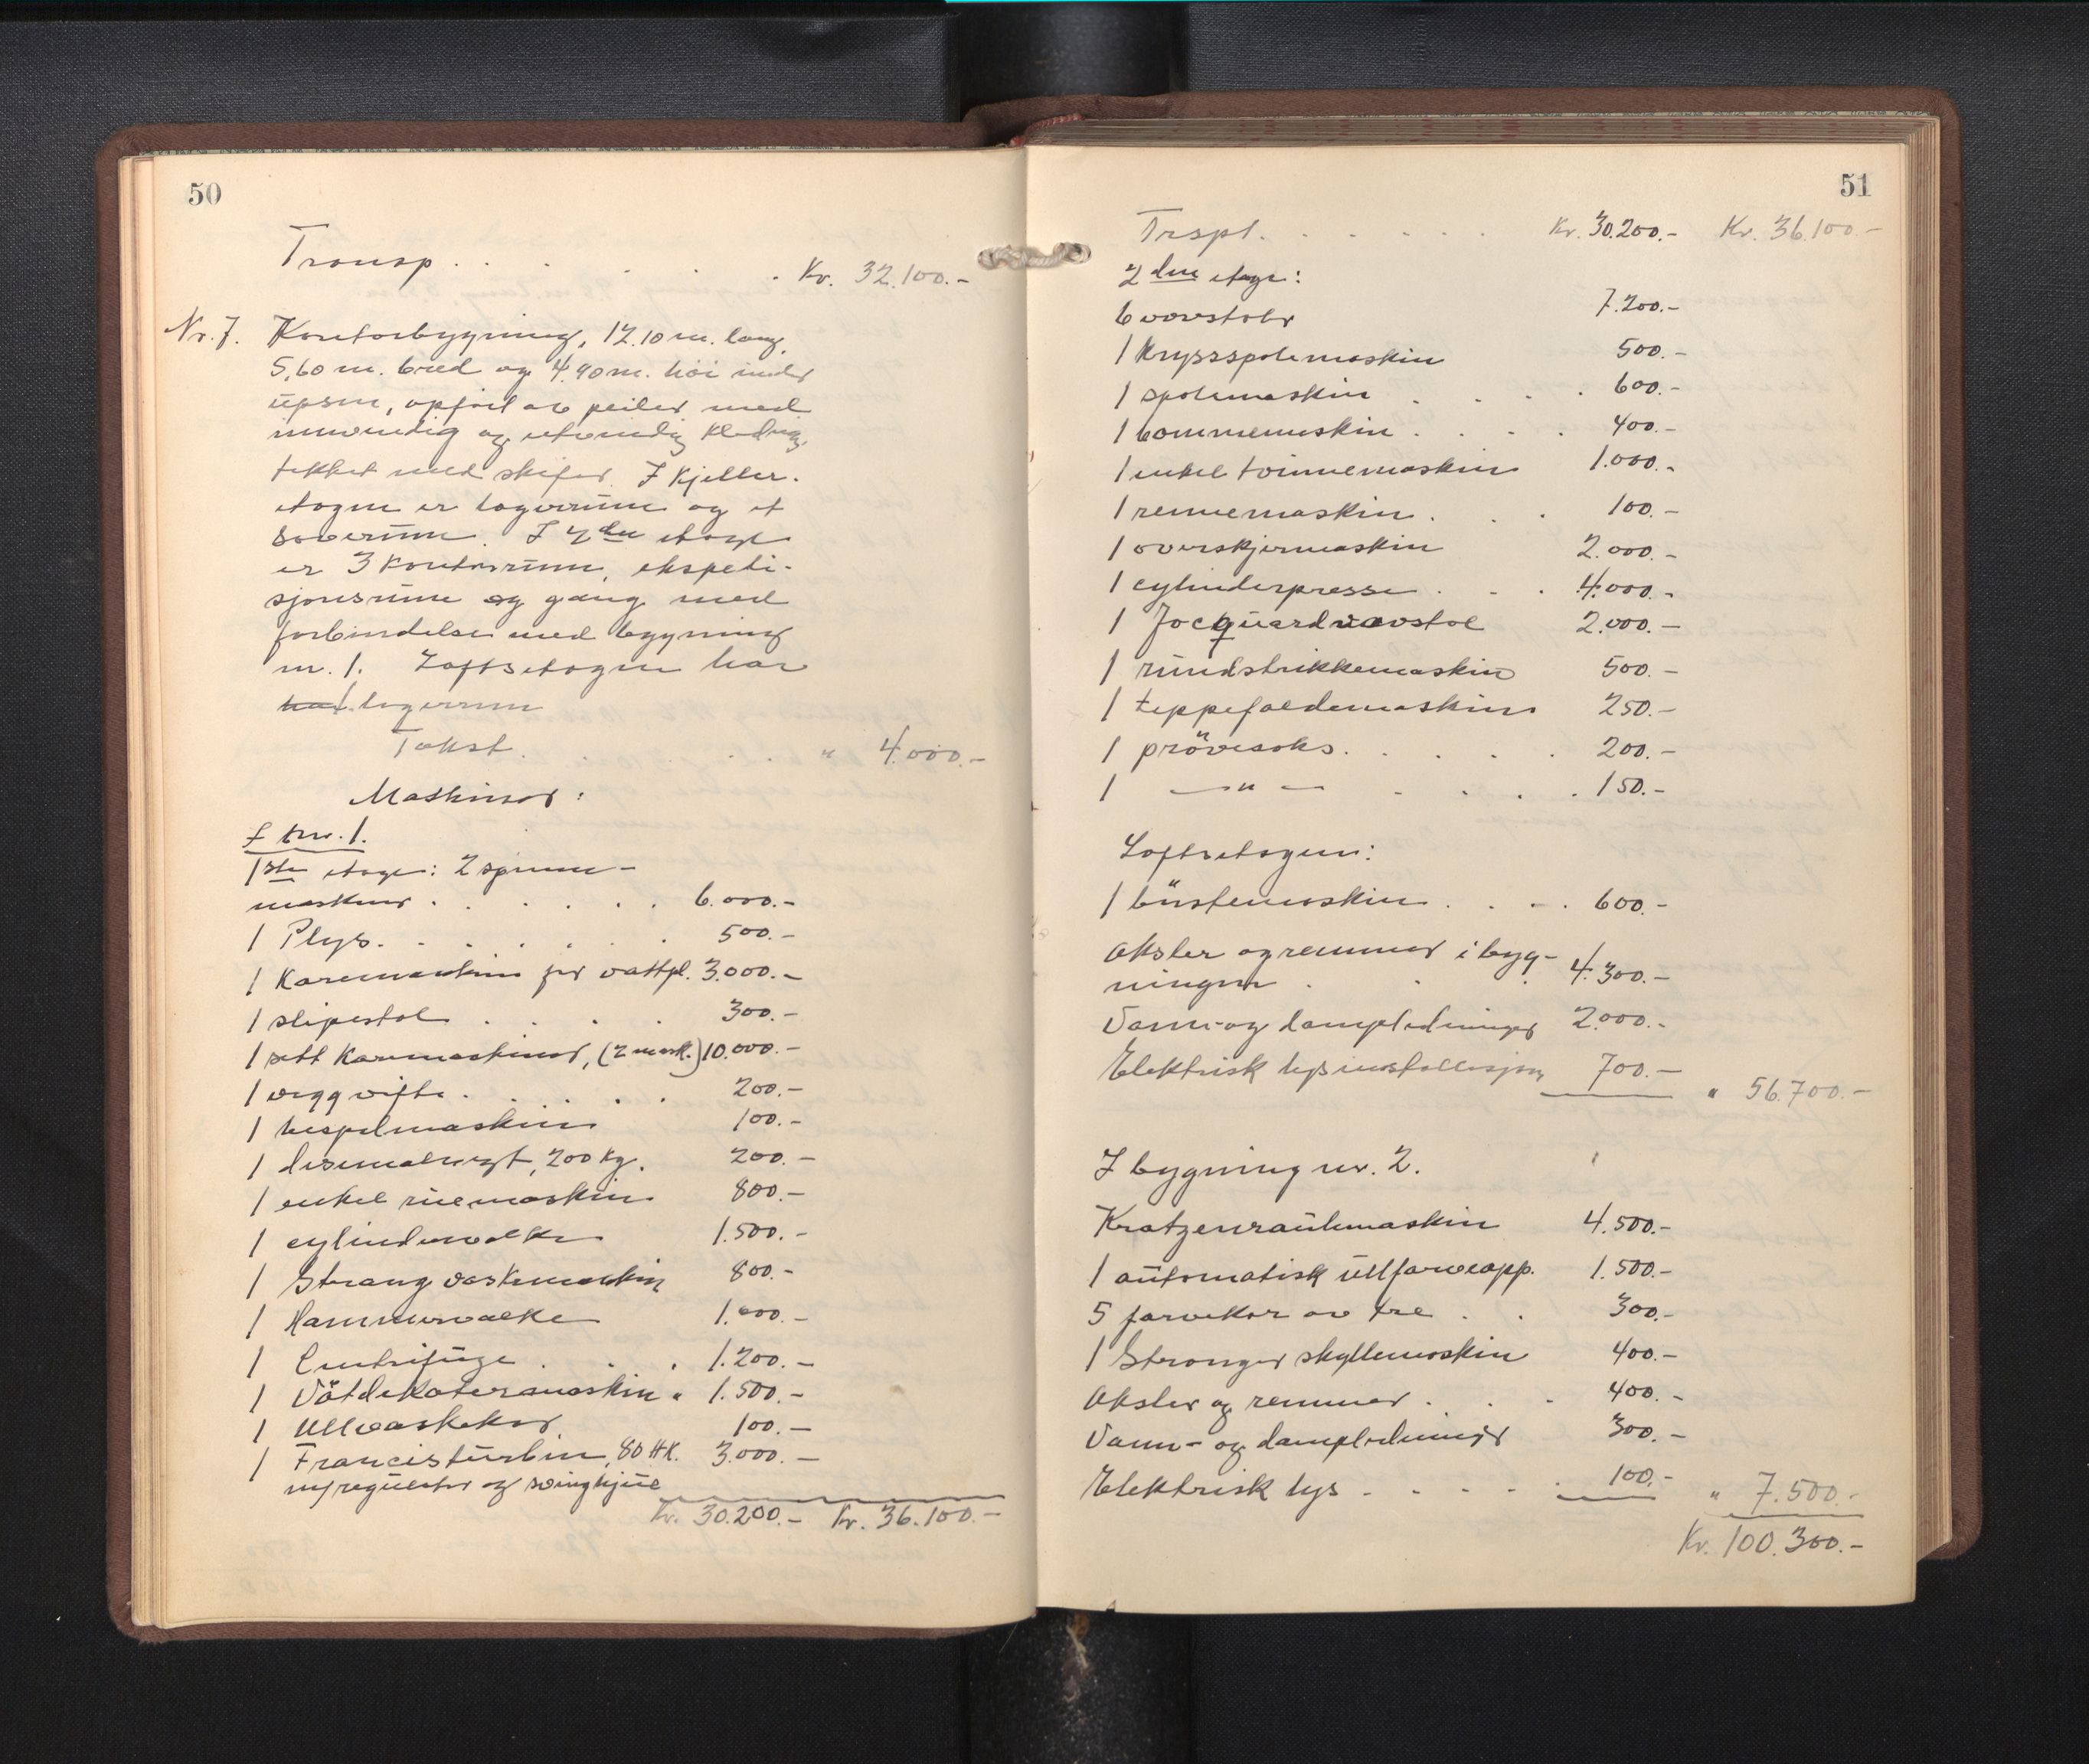 50
Transp. . . . . . Kr. 32.100.-
Nr. 7. Kontorbygning, 12.10 m. lang,
5,60 m. bred og 4,90 m. höi under
üpsen, opfört av peiler med
innvendig og utvendig kledning,
tekket med skifer. I kjeller-
etagen er lagerrüm og et
soverüm. I 2den etage
er 3 kontorrüm, ekspedi-
sjonsrüm og gang med
forbindelse med bygning
nr. 1. Loftsetagen har
lagerrum
Takst. . . . . " 4.000.-
Maskiner:
I nr. 1.
1ste etage: 2 spinne-
maskiner . . . . . 6.000.-
1 Plys. . . . . . 500.-
1 Karemaskin for vattfl. 3.000.-
1 slipestol . . . . 300.-
1 sett karemaskiner, (2 mask.) 10.000.-
1 veggvifte . . . . . 200.-
1 hespelmaskin 100.-
1 desimalvegt, 200 kg. 200.-
1 enkel rüemaskin 800.-
1 cylindervalke 1.500.-
1 Strangvaskemaskin 800.-
1 Hammervalke 1.000.-
1 Centrifüge . . . 1.200.-
1 Våtdekatermaskin . 1.500.-
1 Ullvaskekar 100.-
1 Francistürbin, 80 HK. 3.000.-
m/regülator og svinghjül
Kr. 30.200.- Kr. 36.100.-
51
Trspt. . . . . . . Kr. 30.200.- Kr. 36.100.-
2den etage:
6 vevstoler 7.200.-
1 krysspolemaskin 500.-
1 spolemaskin . . . . 600.-
1 bommemaskin . . . . 400.-
1 enkel tvinnemaskin 1.000.-
1 rennemaskin . . . 100.-
1 overskjermaskin 2.000.-
1 cylinderpresse . . . 4.000.-
1 Jacquardvevstol 2.000.-
1 ründstrikkemaskin 500.-
1 teppefoldemaskin 250.-
1 prövesaks . . . . 200.-
1 —"— . . . . 150.-
Loftsetagen:
1 büstemaskin . . . . 600.-
Aksler og remmer i byg-
ningen . . . 4.300.-
Vann- og dampledninger 2.000.-
Elektrisk lysinstallasjon 700.-
" 56.700.-
I bygning nr. 2.
Kratzenraühmaskin 4.500.-
1 aütomatisk üllfarveapp. 1.500.-
5 farvekar av tre . . 300.-
1 Stranger skyllemaskin 400.-
Aksler og remmer . . . 400.-
Vann- og dampledninger 300.-
Elektrisk lys . . . . . 100.-
" 7.500.-
Kr. 100.300.-